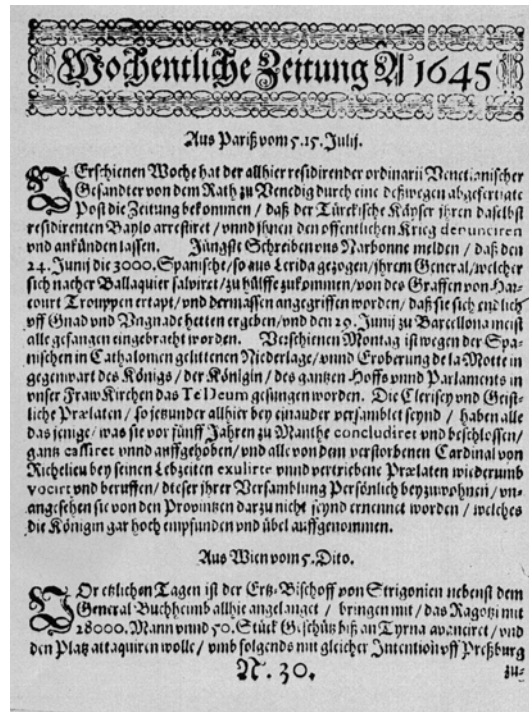 Wochentliche Zeitung A 1645
Aus Pariß vom 5.15. Julij.
VErschienen Woche hat der allhier residirender ordinarii Venetianischer
Gesandter von dem Rath zu Venedig durch eine deßwegen abgefertigte
Post die Zeitung bekommen / daß der Türckische Käyser ihren daselbst
residirenten Baylo arrestiret / vnnd ihnen den offentlichen Krieg denunciren
vnd ankünden lassen. Jüngste Schreiben vns Narbonne melden / daß den
24. Junij die 3000. Spanische / so aus Lerida gezogen / ihrem General / welcher
sich nacher Ballaquier salviret / zu hülffe zukommen / von des Graffen von Har-
court Trouppen ertapt / vnd dermassen angegriffen worden / daß sie sich endlich
vff Gnad vnd Vngnade hetten ergeben / vnd den 29. Junij zu Barcellona meist
alle gefangen eingebracht worden. Verschienen Montag ist wegen der Spa-
nischen in Cathalonien gelittenen Niederlage / vnnd Eroberung de la Motte in
gegenwart des Königs / der Königin / des gantzen Hoffs vnnd Parlaments in
vnser Fraw Kirchen das Te Deum gesungen worden. Die Clerisey vnd Geist-
liche Prælaten / so jetzunder allhier bey einander versamblet seynd / haben alle
das jenige / was sie vor fünff Jahren zu Manthe concludiret vnd beschlossen /
gantz cassiret vnnd auffgehoben / vnd alle von dem verstorbenen Cardinal von
Richelieu bey seinen Lebzeiten exulirte vnnd vertriebene Prælaten wiederumb
vocirt vnd beruffen / dieser ihrer Versamblung Persönlich beyzuwohnen / vn-
angesehen sie von den Provintzen darzu nicht seynd ernennet worden / welches
die Königin gar hoch empfunden vnd übel auffgenommen.
Aus Wien vom 5. Dito.
VOr etzlichen Tagen ist der Ertz-Bischoff von Strigonien nebenst dem
General Buchheimb allhie angelanget / bringen mit / das Ragotzi mit
28000. Mann vnnd 50. Stück Geschütz biß an Tyrna avanciret / vnd
den Platz attaquiren wolle / vmb folgends mit gleicher Intention vff Preßburg
N. 30. zu-